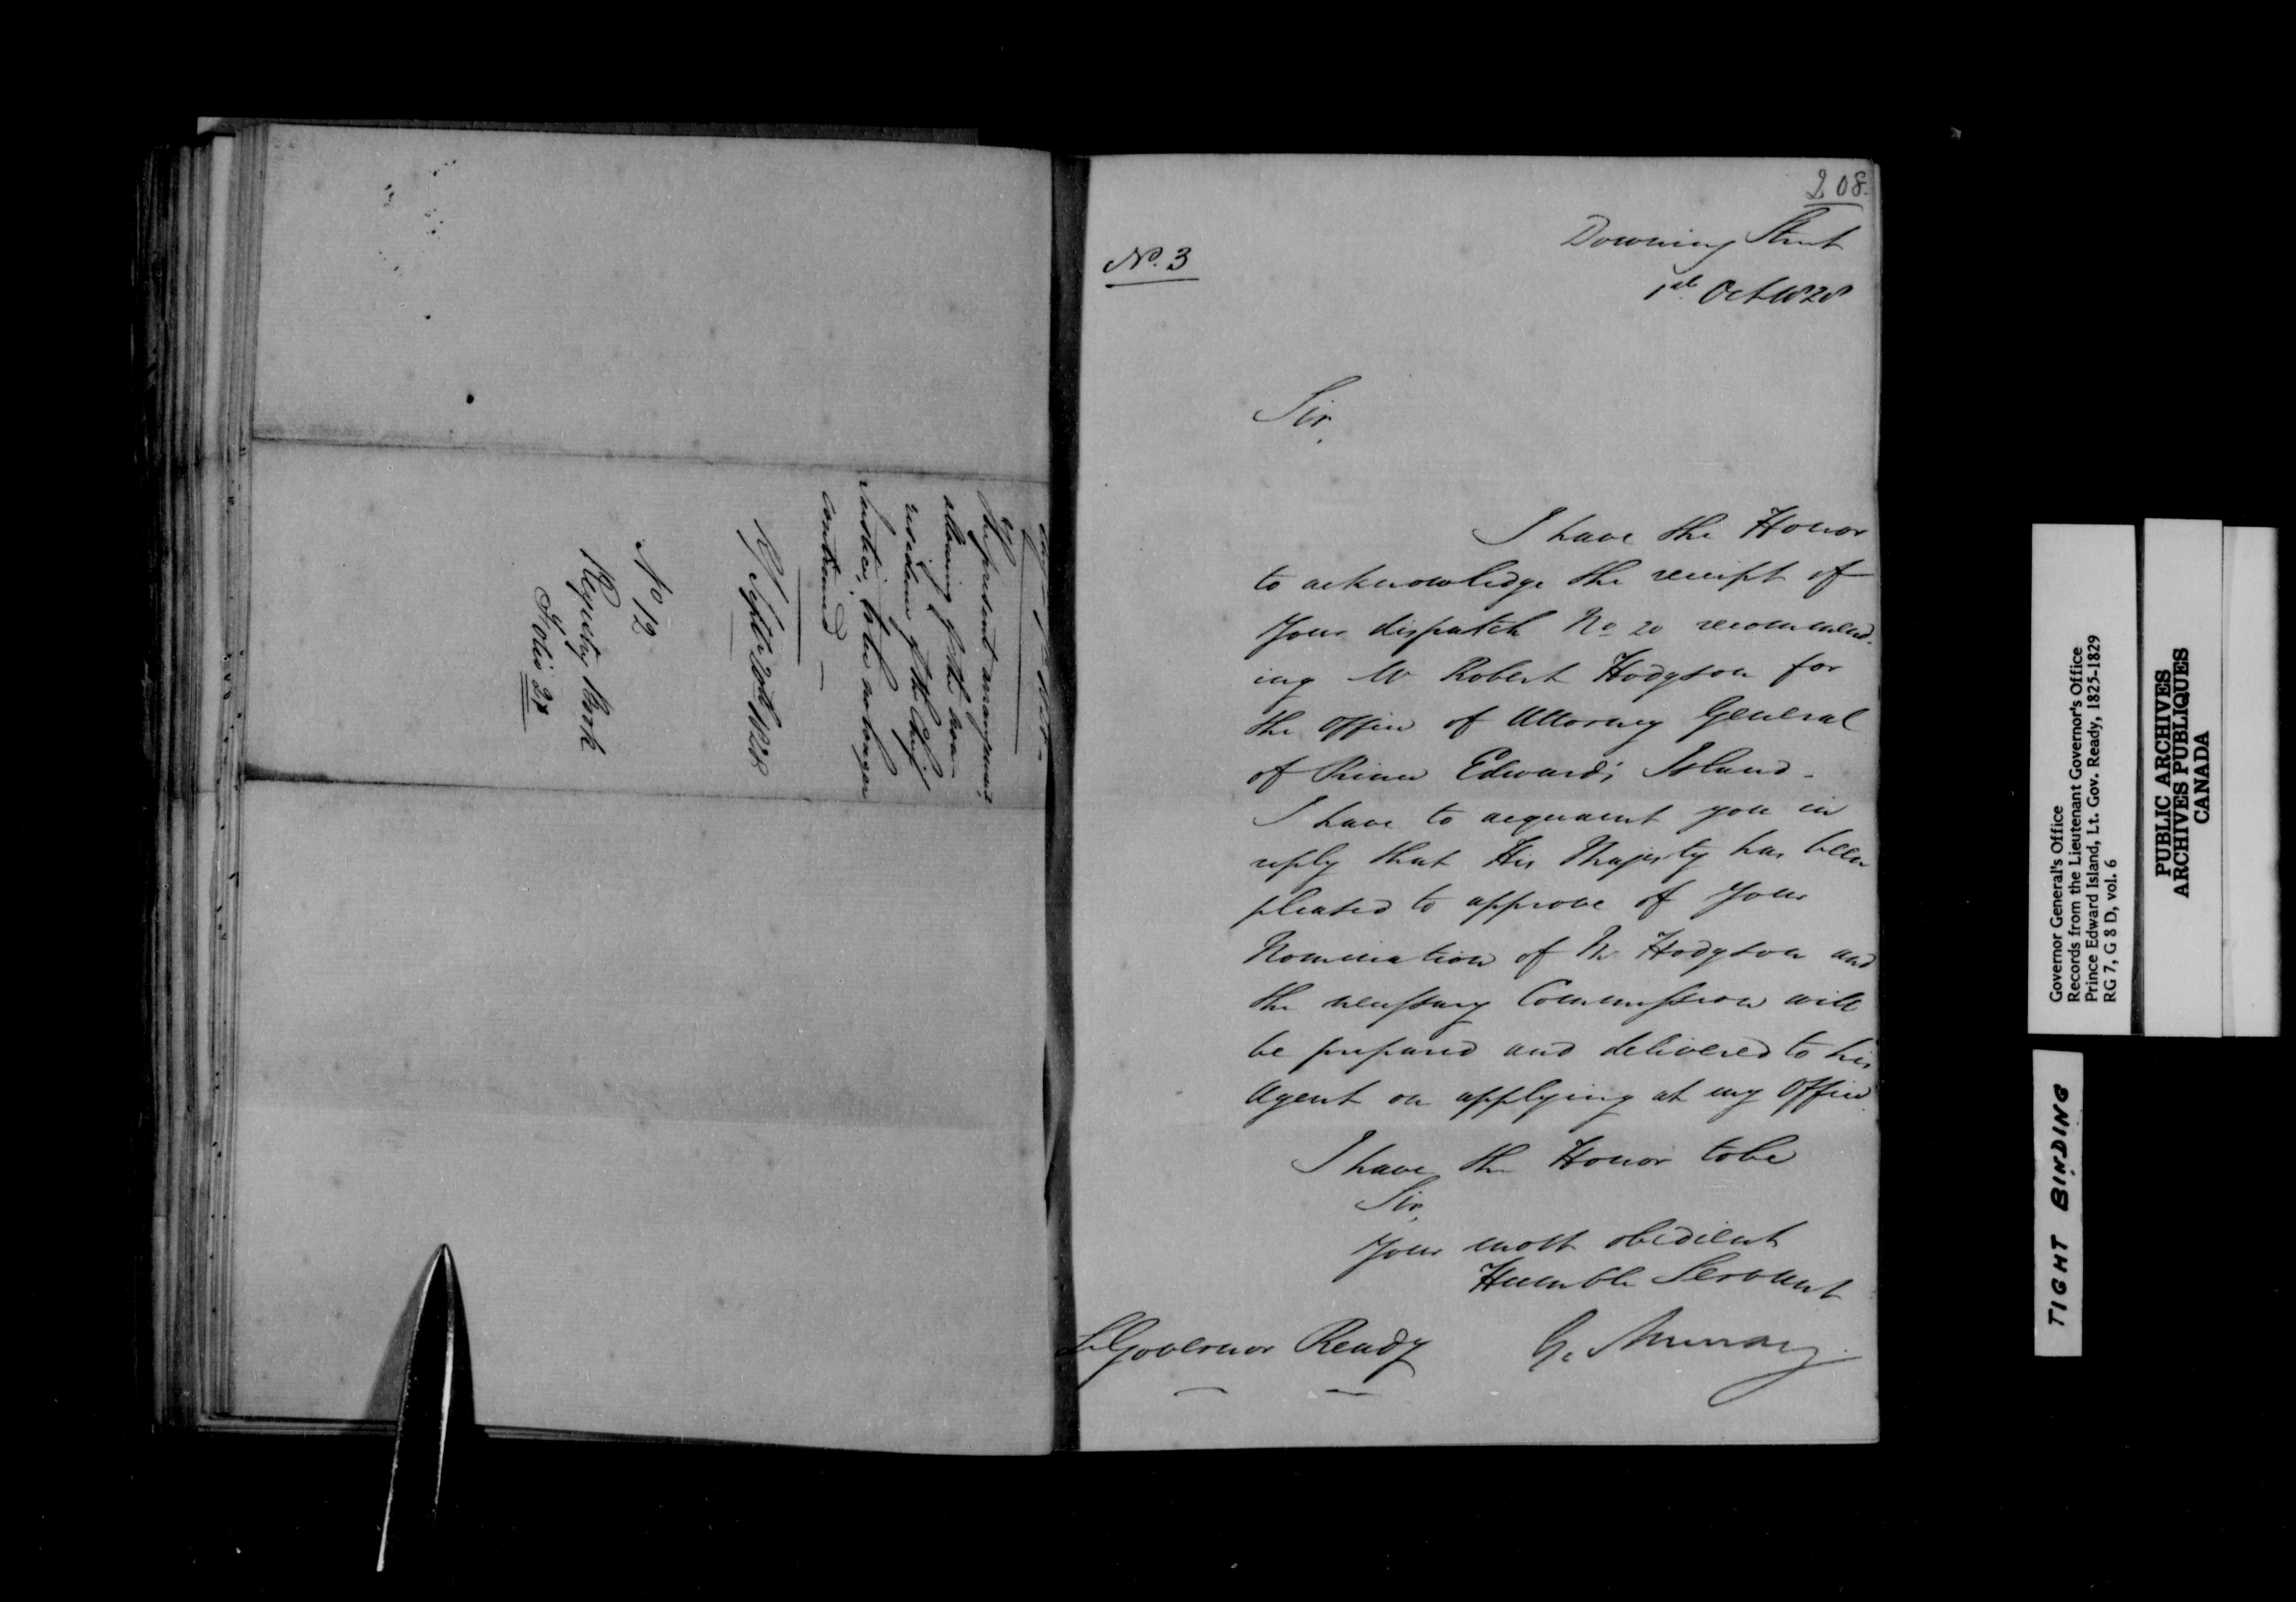 The present arrangement,
allowing of the non-
residence of the Chief
Justice, to be no longer
continued —
Septr 20th 1828
No 12
Registry Book
Folio 27
208.
No. 3
Downing Street
1st Oct 1828
Sir,
I have the Honor
to acknowledge the receipt of
Your dispatch No 20 recommend-
ing Mr Robert Hodgson for
the office of Attorney General
of Prince Edward's Island.
I have to acquaint you in
reply that His Majesty has been
pleased to approve of Your
Nomination of Mr Hodgson and
the necessary Commission will
be prepared and delivered to his
Agent on applying at my Office.
I have the Honor to be
Sir,
Your most obedient
Humble Servant
G. Murray
Lt Governor Ready
Governor General's Office
Records from the Lieutenant Governor's Office
Prince Edward Island, Lt. Gov. Ready, 1825-1829
RG 7, G 8 D, vol. 6
PUBLIC ARCHIVES
ARCHIVES PUBLIQUES
CANADA
TIGHT BINDING